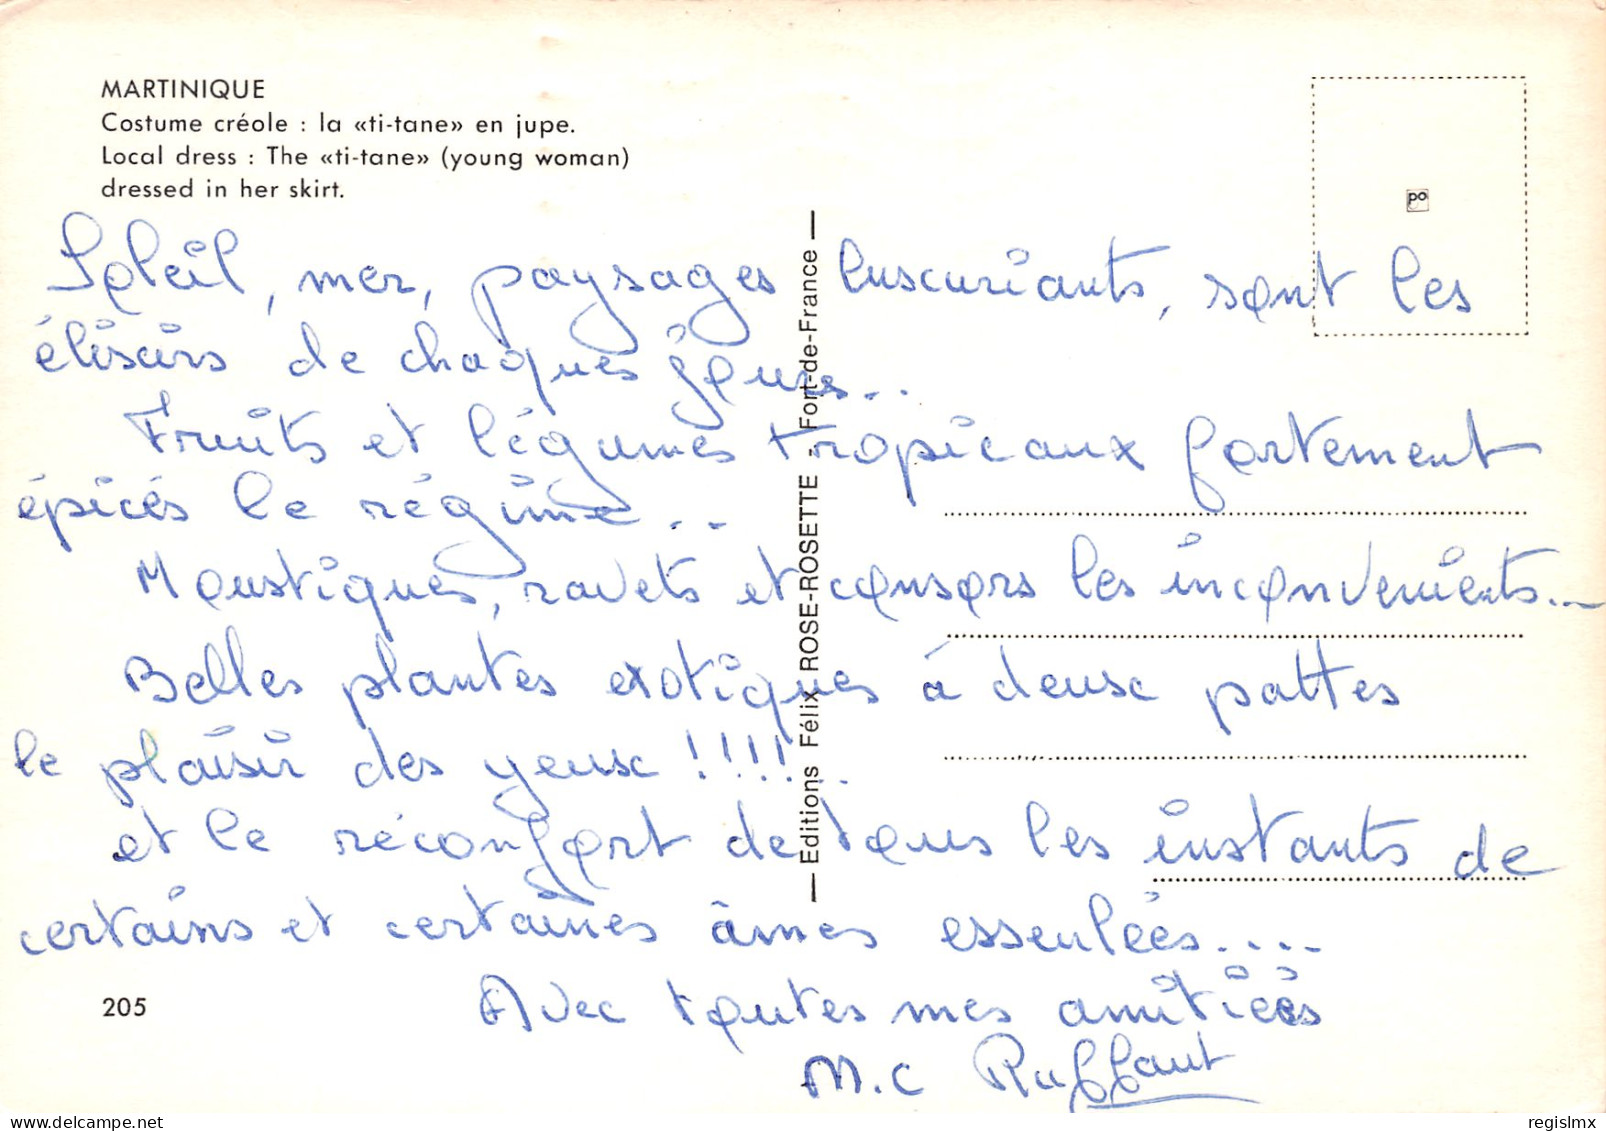 MARTINIQUE
Costume créole : la «ti-tane» en jupe.
Local dress : The «ti-tane» (young woman)
dressed in her skirt.
po
Soleil, mer, paysages luscuriants, sont les
élisirs de chaques jours...
Fruits et légumes tropicaux fortement
épicés le régime...
Moustiques, ravets et consors les inconvenients...
Belles plantes exotiques à deux pattes
le plaisir des yeux !!!!...
et le réconfort de tous les instants de
certains et certaines âmes esseulées....
Avec toutes mes amitiées
M.C Ruffaut
Editions Félix ROSE-ROSETTE - Fort-de-France
205
regislmx